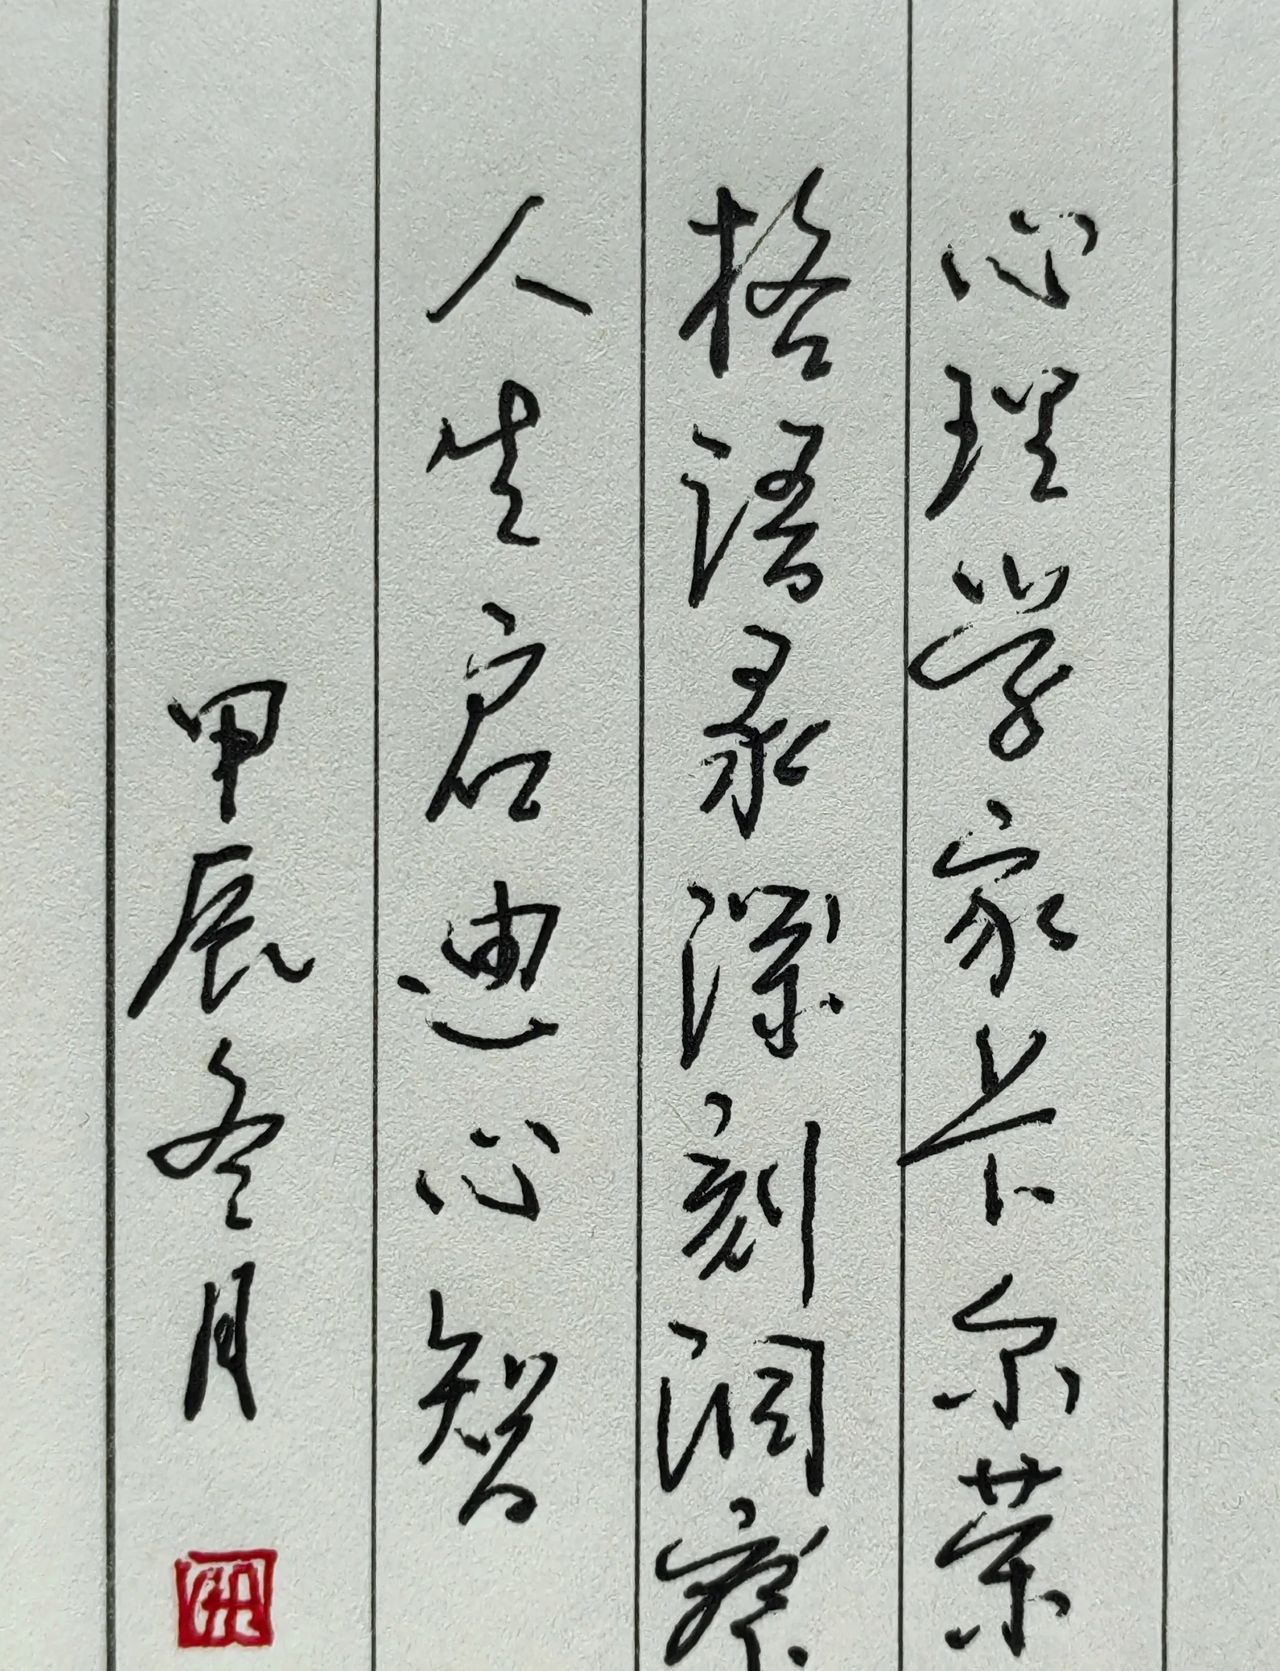 心理学家卡尔荣
格语录深刻洞察
人生启迪心智
甲辰冬月